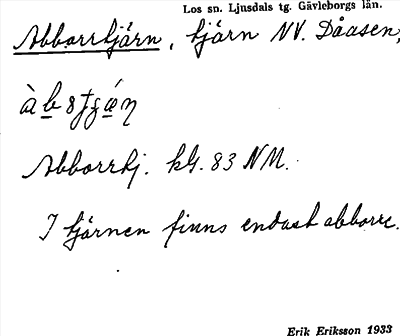 Los sn. Ljusdals tg. Gävleborgs län.
Abborrtjärn, tjärn NV. Dåasen,
Abborrtj. kG. 83 NM.
I tjärnen finns endast abborre.
Erik Eriksson 1933